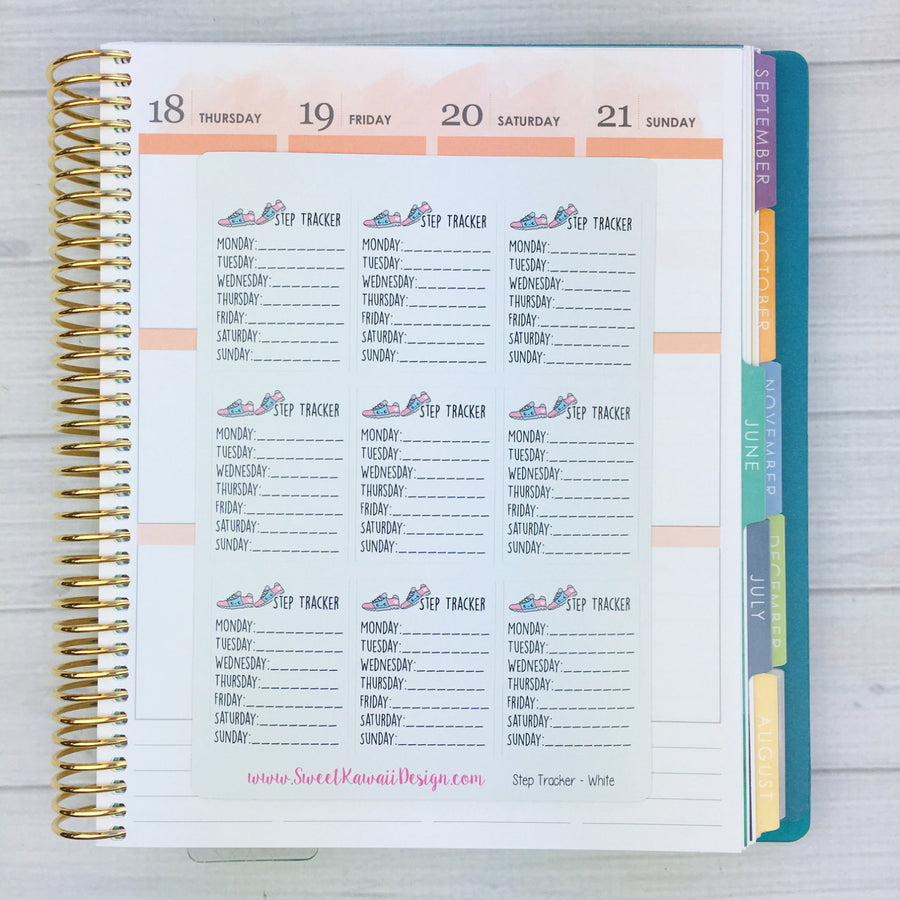 18 THURSDAY 19 FRIDAY 20 SATURDAY 21 SUNDAY
STEP TRACKER
MONDAY:
TUESDAY:
WEDNESDAY:
THURSDAY:
FRIDAY:
SATURDAY:
SUNDAY:
STEP TRACKER
MONDAY:
TUESDAY:
WEDNESDAY:
THURSDAY:
FRIDAY:
SATURDAY:
SUNDAY:
STEP TRACKER
MONDAY:
TUESDAY:
WEDNESDAY:
THURSDAY:
FRIDAY:
SATURDAY:
SUNDAY:
STEP TRACKER
MONDAY:
TUESDAY:
WEDNESDAY:
THURSDAY:
FRIDAY:
SATURDAY:
SUNDAY:
STEP TRACKER
MONDAY:
TUESDAY:
WEDNESDAY:
THURSDAY:
FRIDAY:
SATURDAY:
SUNDAY:
STEP TRACKER
MONDAY:
TUESDAY:
WEDNESDAY:
THURSDAY:
FRIDAY:
SATURDAY:
SUNDAY:
STEP TRACKER
MONDAY:
TUESDAY:
WEDNESDAY:
THURSDAY:
FRIDAY:
SATURDAY:
SUNDAY:
STEP TRACKER
MONDAY:
TUESDAY:
WEDNESDAY:
THURSDAY:
FRIDAY:
SATURDAY:
SUNDAY:
STEP TRACKER
MONDAY:
TUESDAY:
WEDNESDAY:
THURSDAY:
FRIDAY:
SATURDAY:
SUNDAY:
www.SweetKawaiiDesign.com
Step Tracker - White
SEPTEMBER
OCTOBER
NOVEMBER
JUNE
DECEMBER
JULY
AUGUST